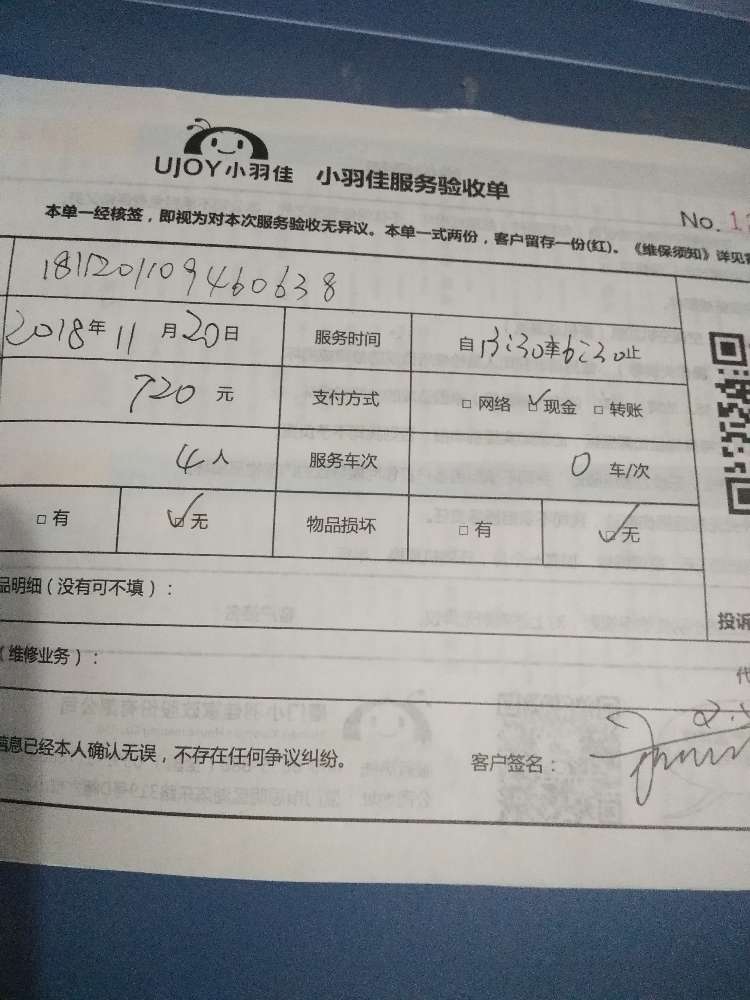 UJOY小羽佳 小羽佳服务验收单
No. 1
本单一经核签，即视为对本次服务验收无异议。本单一式两份，客户留存一份(红)。《维保须知》详见
181120110946063​8
2018年11月20日 服务时间 自13:30至6:30止
720元 支付方式 □网络 ☑现金 □转账
4人 服务车次 0车/次
□有 ☑无 物品损坏 □有 ☑无
品明细(没有可不填)：
投诉
(维修业务)：
代
信息已经本人确认无误，不存在任何争议纠纷。 客户签名：